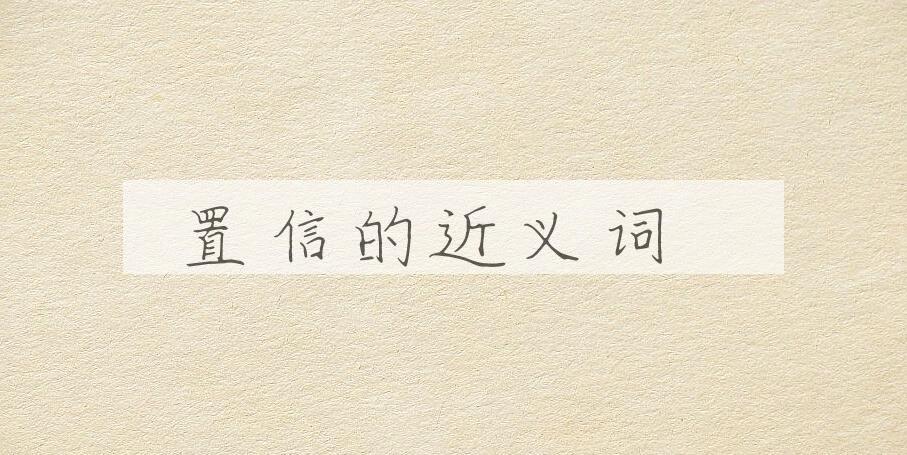 置信的近义词